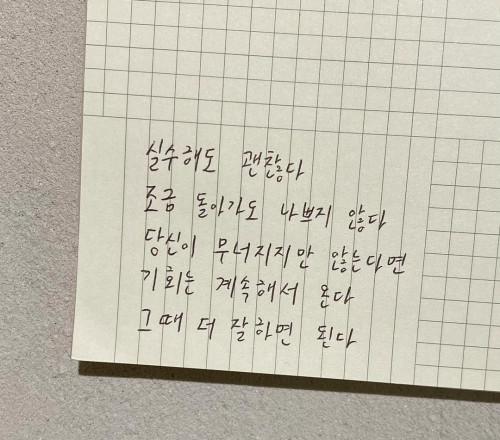 실수해도 괜찮다
조금 돌아가도 나쁘지 않다
당신이 무너지지만 않는다면
기회는 계속해서 온다
그때 더 잘하면 된다